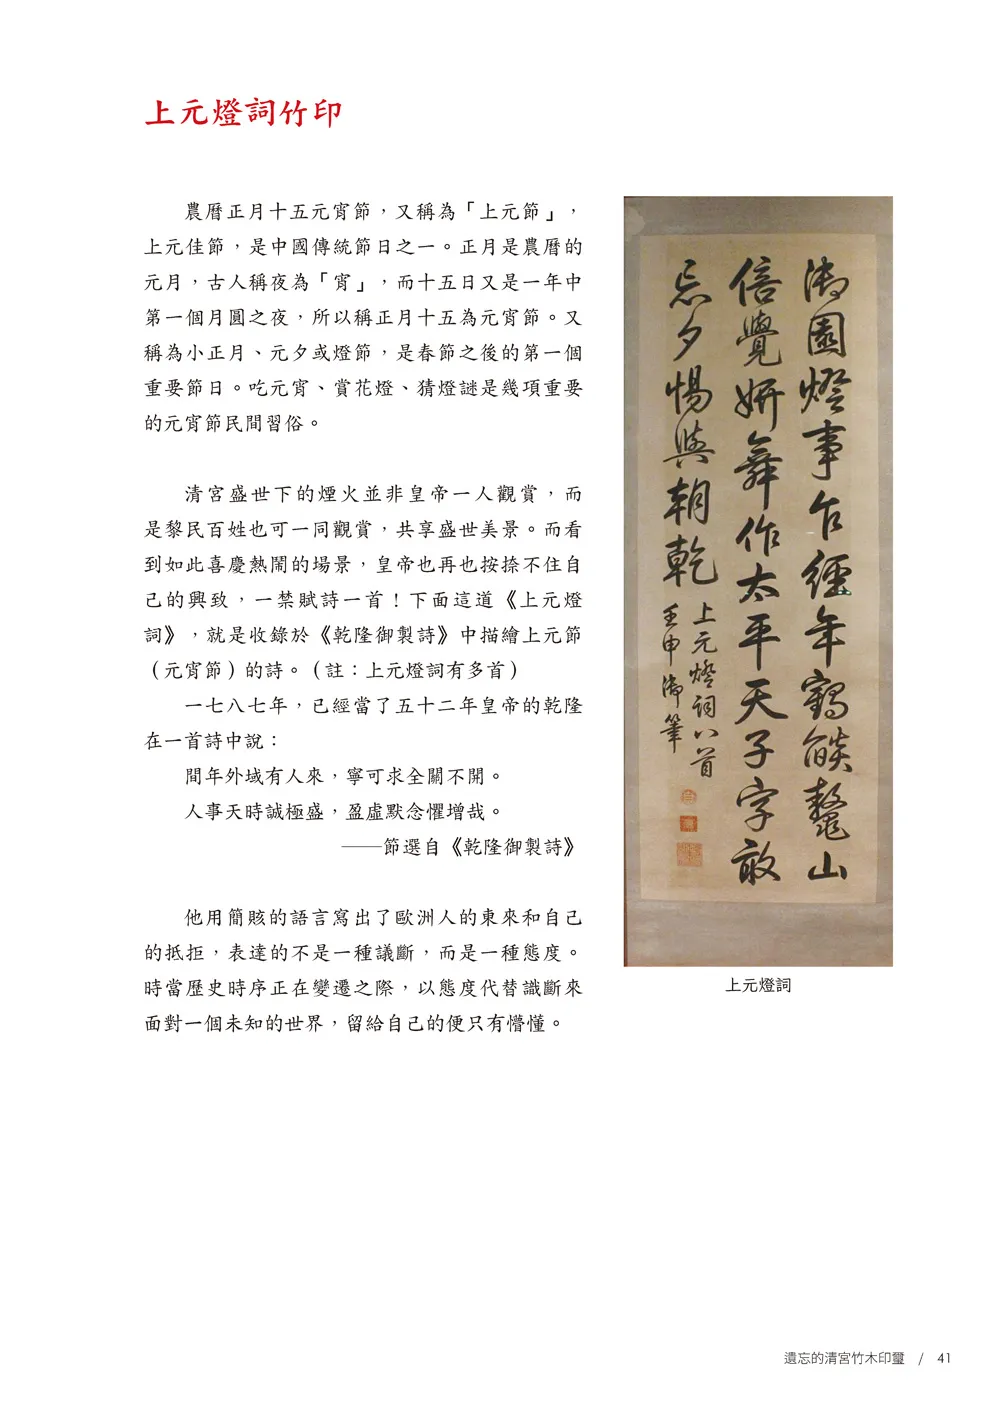 上元燈詞竹印
農曆正月十五元宵節，又稱為「上元節」，
上元佳節，是中國傳統節日之一。正月是農曆的
元月，古人稱夜為「宵」，而十五日又是一年中
第一個月圓之夜，所以稱正月十五為元宵節。又
稱為小正月、元夕或燈節，是春節之後的第一個
重要節日。吃元宵、賞花燈、猜燈謎是幾項重要
的元宵節民間習俗。
清宮盛世下的煙火並非皇帝一人觀賞，而
是黎民百姓也可一同觀賞，共享盛世美景。而看
到如此喜慶熱鬧的場景，皇帝也再也按捺不住自
己的興致，一禁賦詩一首！下面這道《上元燈
詞》，就是收錄於《乾隆御製詩》中描繪上元節
（元宵節）的詩。（註：上元燈詞有多首）
一七八七年，已經當了五十二年皇帝的乾隆
在一首詩中說：
間年外域有人來，寧可求全關不開。
人事天時誠極盛，盈虛默念懼增哉。
──節選自《乾隆御製詩》
他用簡賅的語言寫出了歐洲人的東來和自己
的抵拒，表達的不是一種議斷，而是一種態度。
時當歷史時序正在變遷之際，以態度代替識斷來
面對一個未知的世界，留給自己的便只有懵懂。
御園燈事乍經年鶴燄鼇山
倍覺妍舞作太平天子字敢
忘夕惕與朝乾
上元燈詞八首
壬申御筆
上元燈詞
遺忘的清宮竹木印璽 / 41